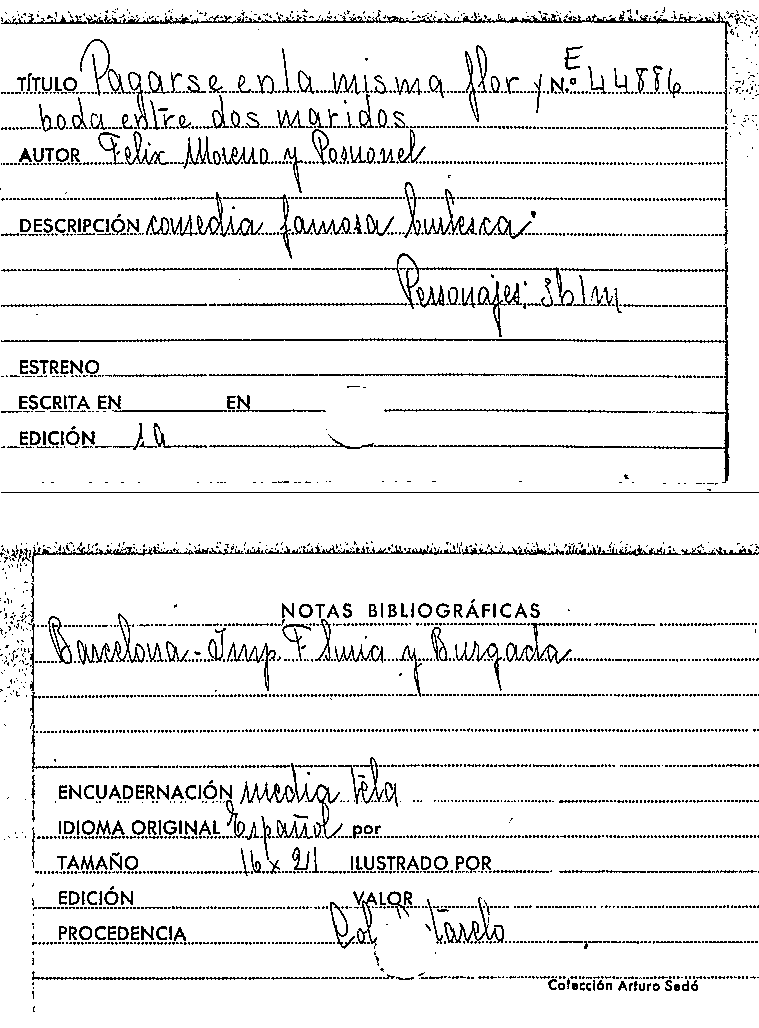 TÍTULO Pagarse en la misma flor y N.º E 44886
boda entre dos maridos
AUTOR Felix Moreno y Posuonel
DESCRIPCIÓN comedia famosa burlesca
Personajes: 3b1m
ESTRENO
ESCRITA EN EN
EDICIÓN 1a
NOTAS BIBLIOGRÁFICAS
Barcelona - Imp F. Suria y Burgada
ENCUADERNACIÓN media tela
IDIOMA ORIGINAL Español por
TAMAÑO 16 x 21 ILUSTRADO POR
EDICIÓN VALOR
PROCEDENCIA
Colección Arturo Sedó